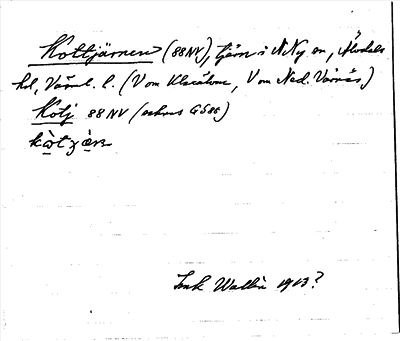 Kottjärnen (88NV), tjärn i N Ny sn, Älvdals
hd, Värml. l. (V om Klarälven, V om Ned. Värnäs)
Kotj 88 NV (saknas GS88)
Wallin 1913?